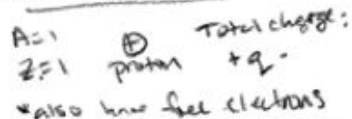 A=1 ⊕ Total charge:
Z=1 proton +q.
*also have free electrons